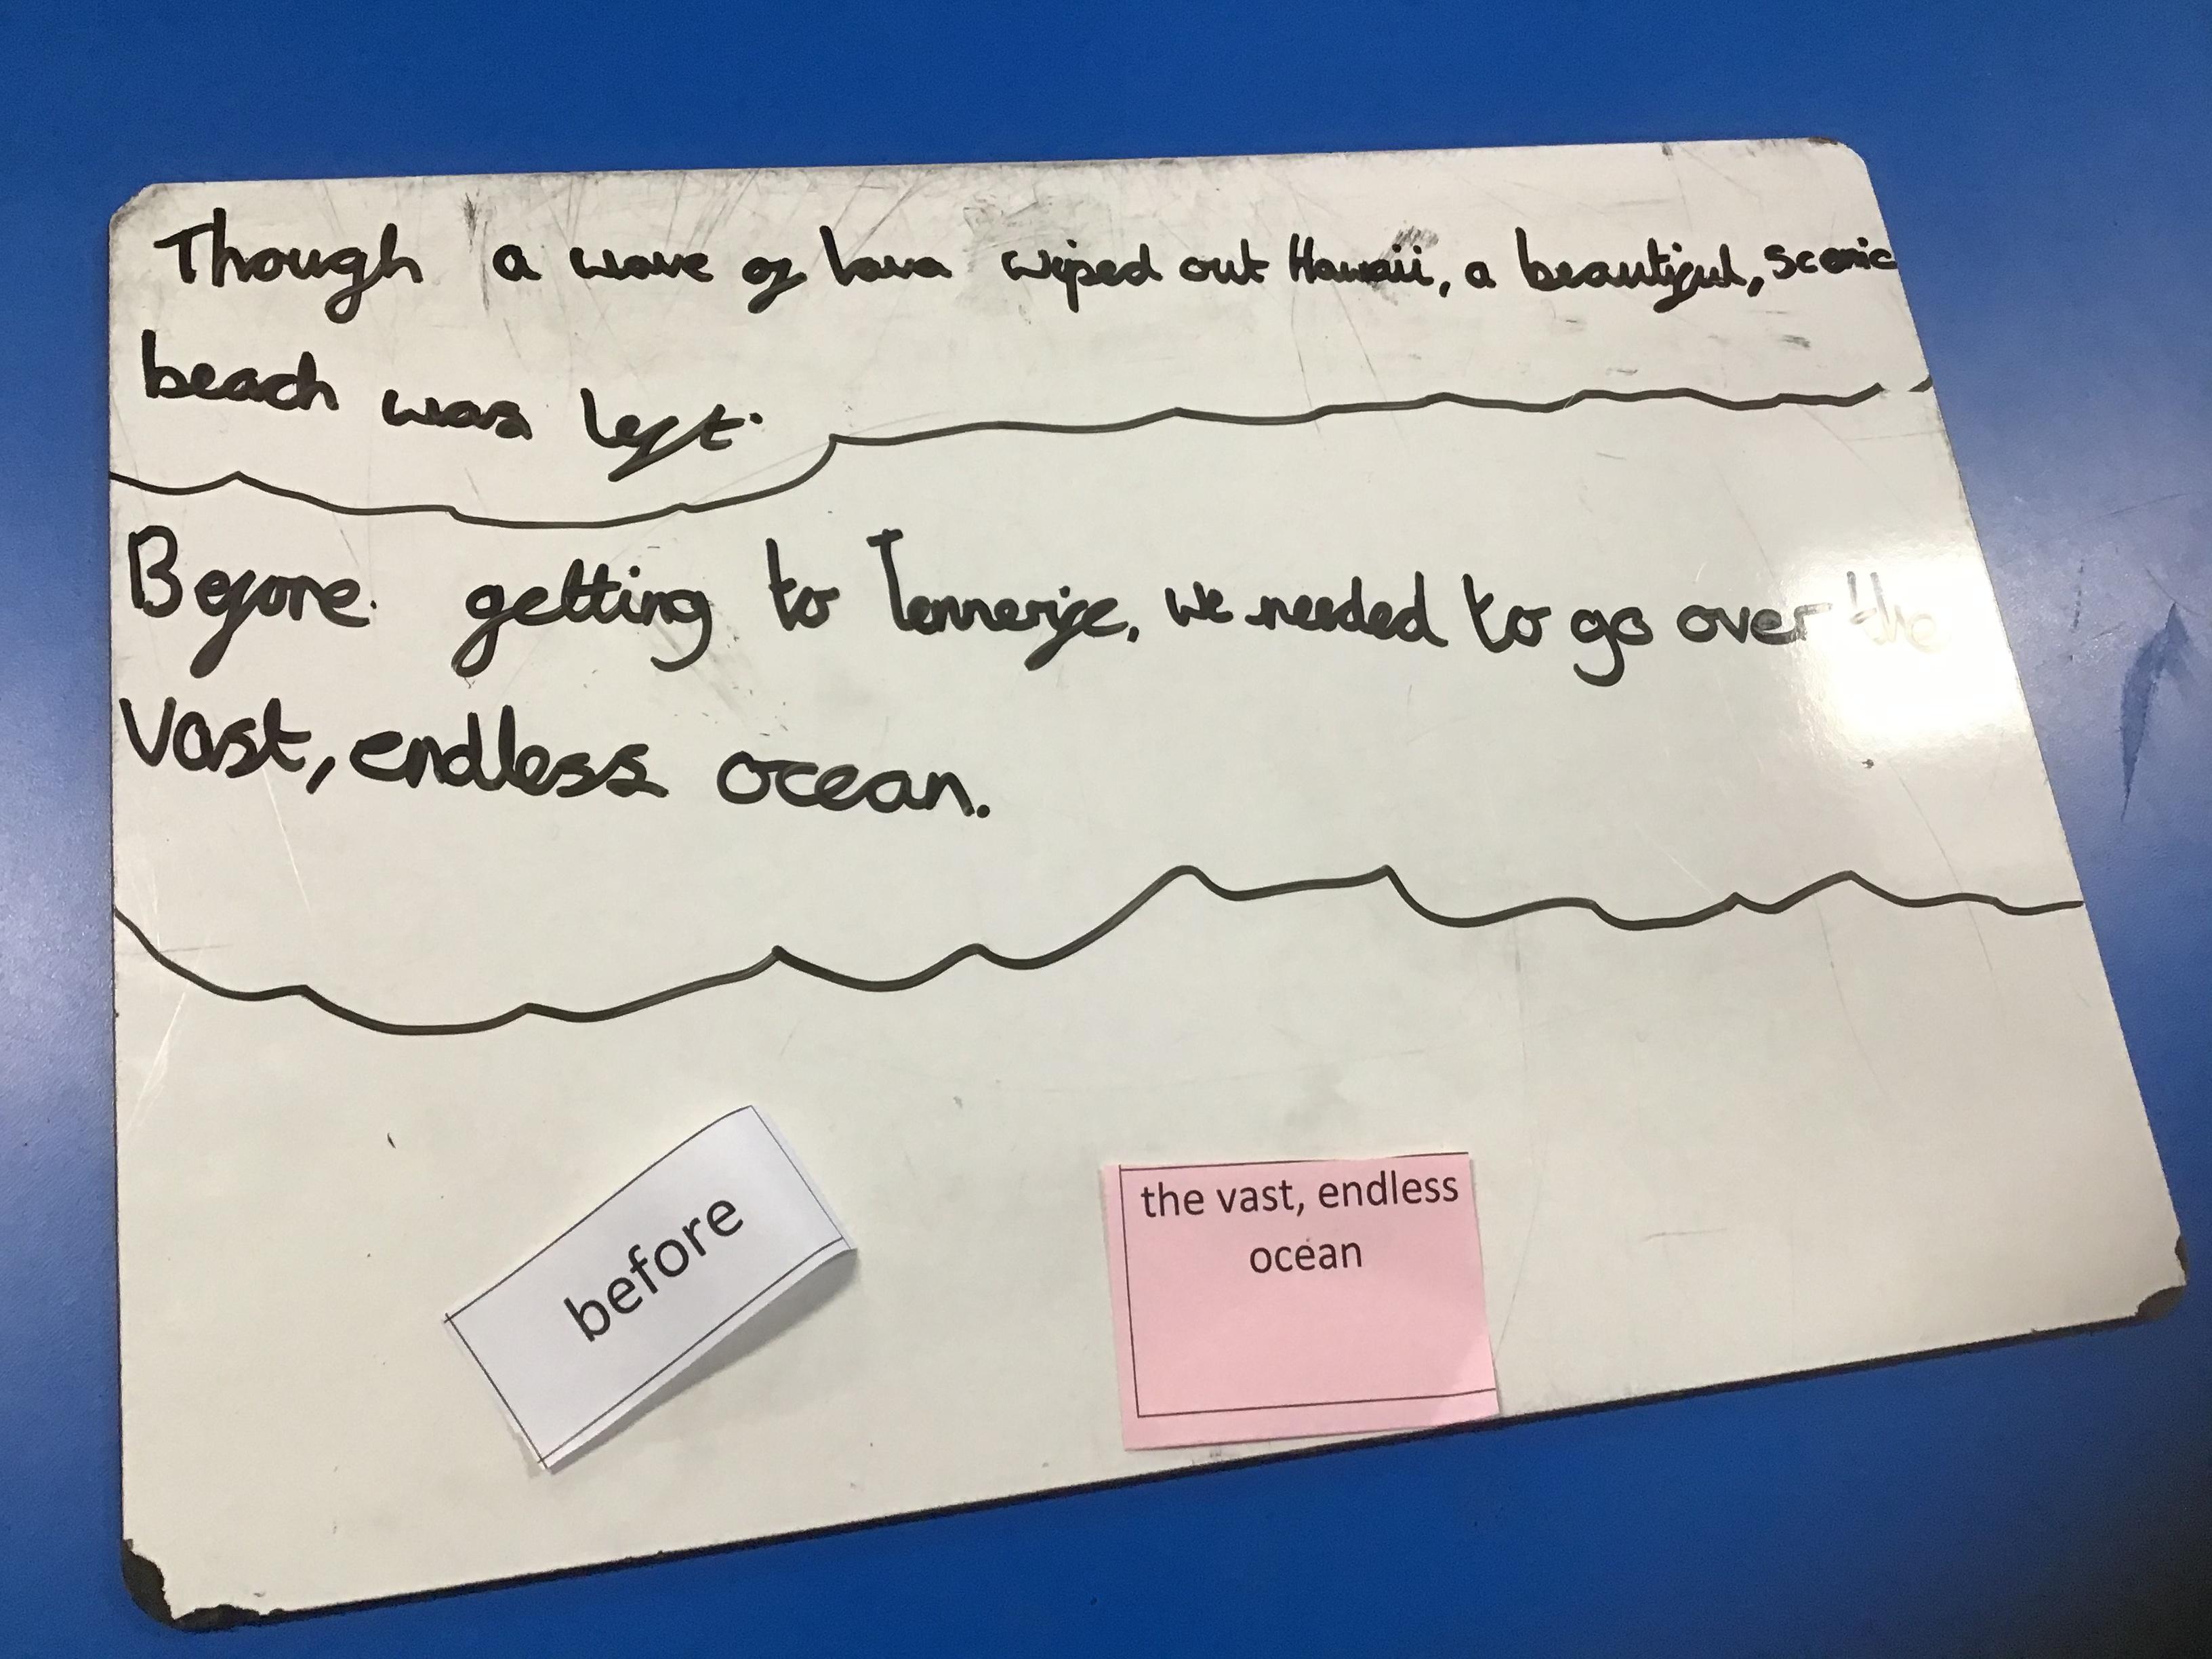 Though a wave of lava wiped out Hawaii, a beautiful, scenic
beach was left.
Before getting to Tennerife, we needed to go over the
vast, endless ocean.
before
the vast, endless
ocean